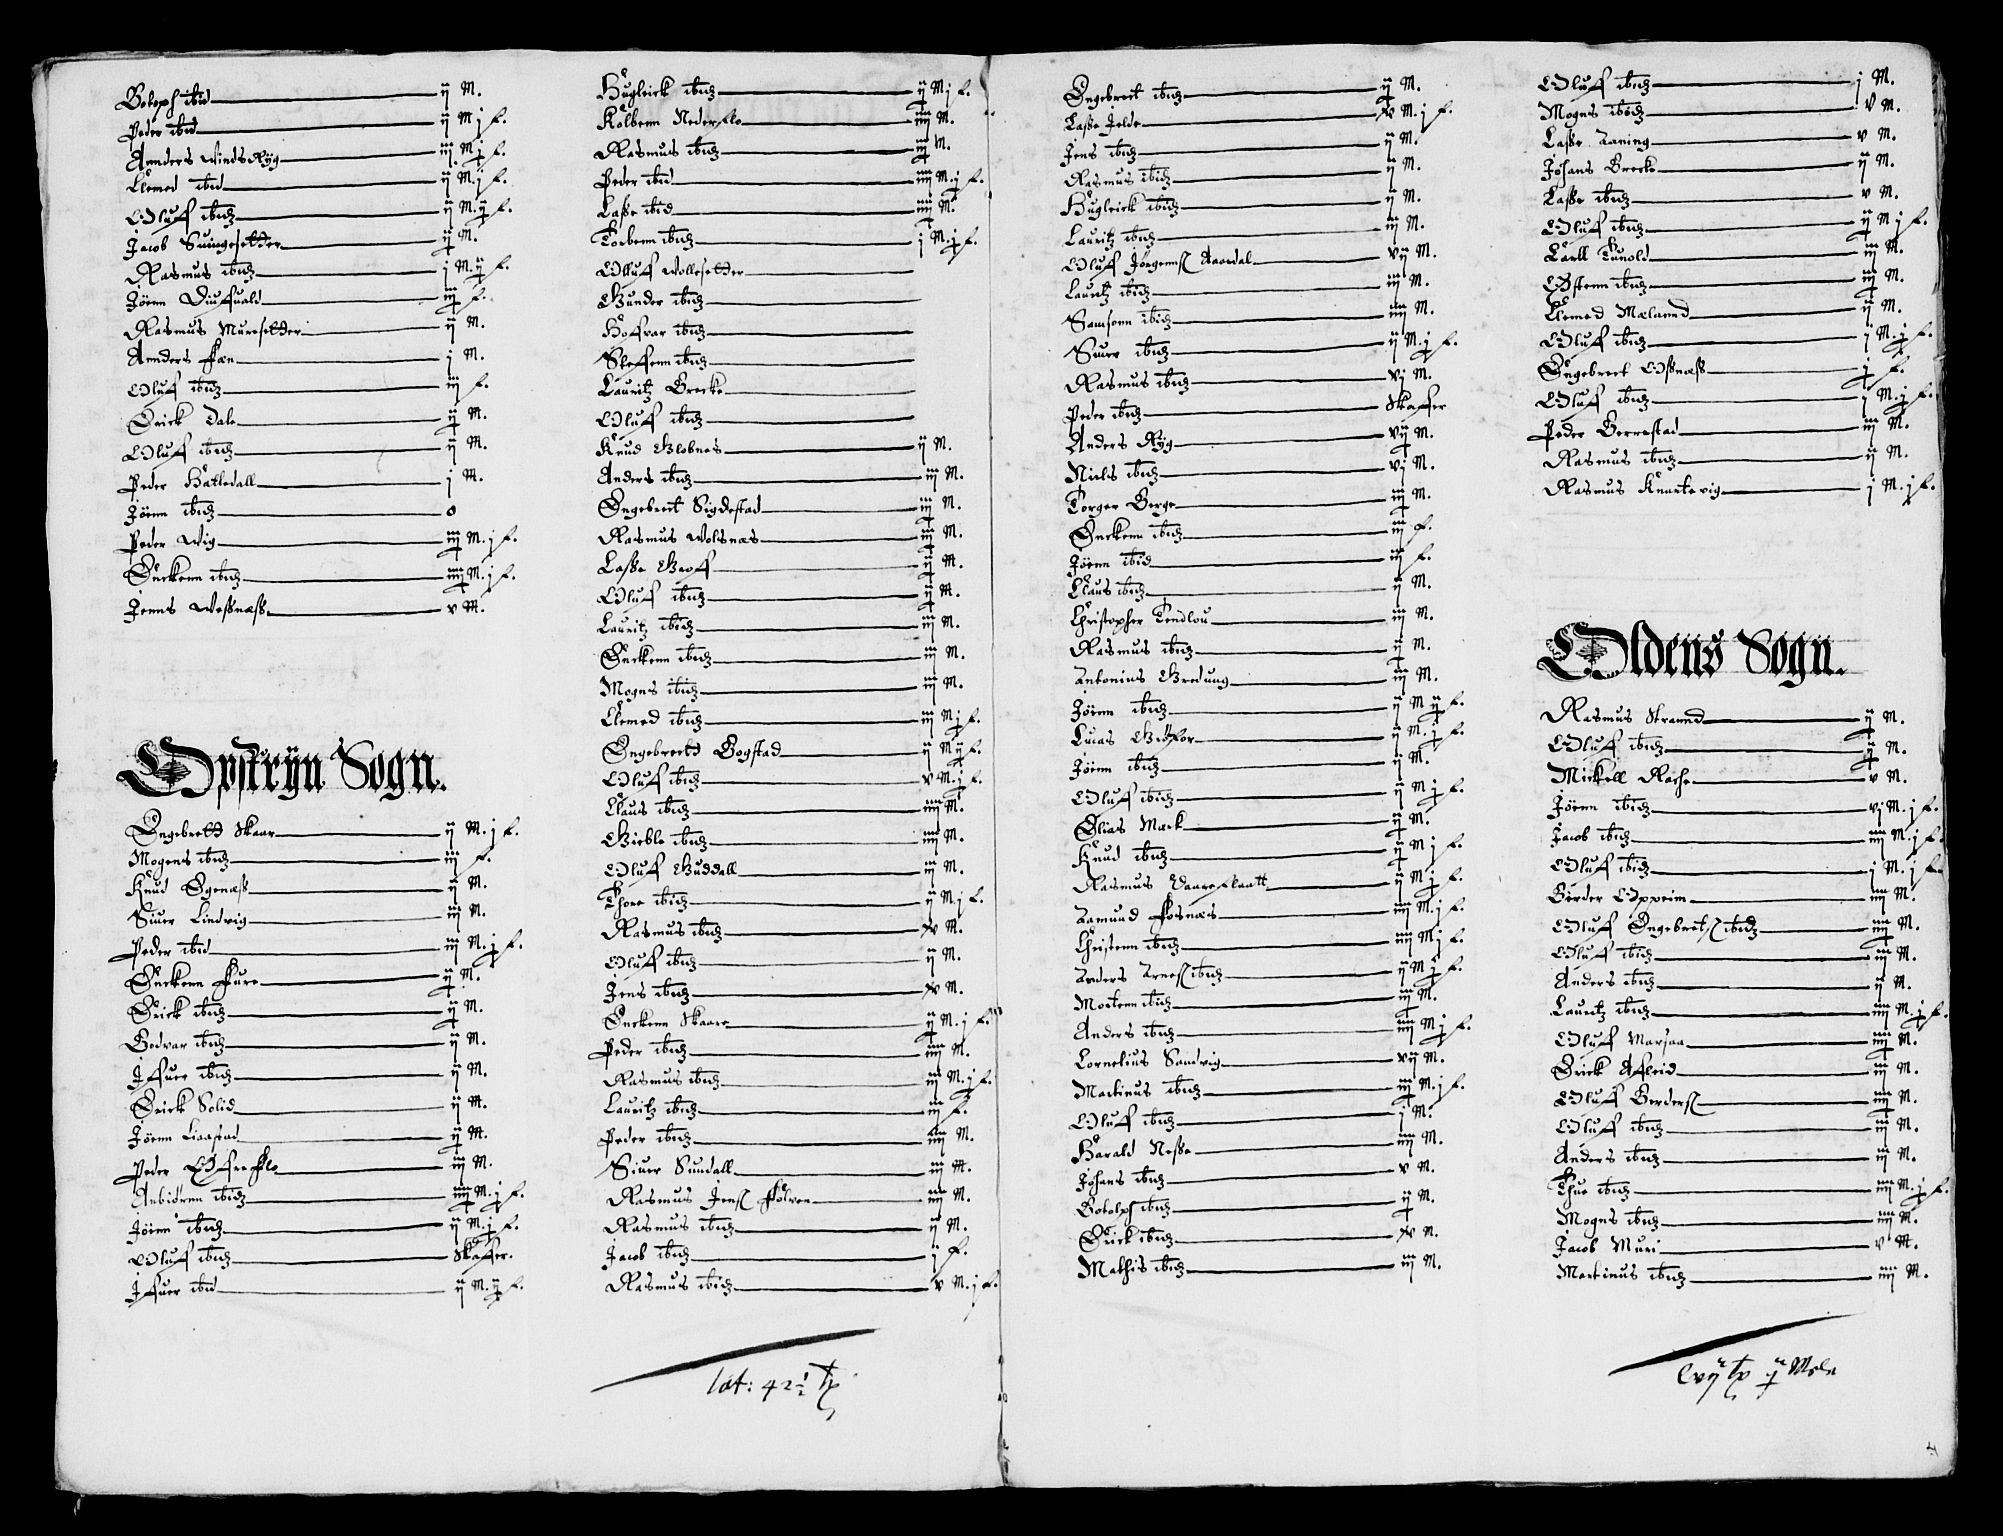 Botoph ibid ij M.
Peder ibid ij M j f.
Annders WindsRyg iij M j f.
Clemed ibid ij M. j f.
Oluff ibidz ij M. ij f.
Jacob Suingesetter ij M.
Rasmus ibidz j M. ij f.
Jöenn iij f.
Rasmus Muresetter ij M.
Annders Fæn j M.
Oluff ibidz iij f.
Erick Dale ij M.
Oluff ibidz ij M.
Peder Hatledall j M.
Jöenn ibidz o
Peder Wig iij M. j f.
Enckenn ibidz iiij M. j f.
Jenns Weßnæß v M.
Opstryn Sogn.
Engebrett Skaar ij M. j f.
Mogens ibidz iij f.
Knud Egenæß ij M.
Siuer Lindvig iij M.
Peder ibid iij M. j f.
Enckenn Fure ij M.
Erick ibidz ij M.
Bodvar ibidz ij M.
Iffuer ibidz ij M.
Erick Solid ij M.
Jöenn ij M.
Peder Öfreflo iij M.
Anbiörnn ibidz iiij M. j f.
Jöenn ibidz ij M. j f.
Oluff ibidz Skaffer.
Iffuer ibid ij M. ij f.
Hugleick ibidz ij M j f.
Kolbenn Nederflo iiij M.
Rasmus ibidz iij M.
Peder ibid iiij M. j f.
Laße ibid iiij M.
Torbenn ibidz j M. j f.
Olluff Wollesetter
Gunder ibidz
Hoffvar ibidz
Steffenn ibidz
Lauritz Brecke
Oluff ibidz
Knud Globnes ij M.
Anders ibidz iij M.
Engebrett Sigdestad iij M.
Rasmus Wolsnæs iij M.
Laße Groff ij M.
Oluff ibidz ij M.
Lauritz ibidz iij M.
Enckenn ibidz iij M.
Mogns ibidz iij M.
Clemed ibidz iij M j f.
Engebrett Bogstad ij M ij f.
Oluff ibidz v M. j f.
Claus ibidz iiij M.
Gieble ibidz iiij M.
Oluff Guddall iij M.
Thore ibidz ij M. j f.
Rasmus ibidz xv M.
Oluff ibidz ij M.
Jens ibidz xv M.
Enckenn Skaare ij M. j f.
Peder ibidz iiij M.
Rasmus ibidz iij M. j f.
Lauritz ibidz iij f.
Peder ibidz iiij M.
Siuer Sundall iij M.
Rasmus Jens Folven iiij M.
Rasmus ibidz ij M.
Jacob ibidz ij f.
Rasmus ibidz v M. j f.
lat: 42½
Engebrett ibidz ij M.
Laße Jelde xv M. j f.
Jens ibidz ij M.
Rasmus ibidz ij M.
Hugleick ibidz ij M.
Lauritz ibidz iij M.
Oluff Jörgenns Aaardal vij M.
Lauritz ibidz iij M.
Samsonn ibidz iiij M.
Siuer ibidz ij M. j f.
Rasmus ibidz vj M.
Peder ibidz Skaffer
Anders Ryg vij M.
Niels ibidz vj M.
Torger Berge iij M.
Enckenn ibidz iij f.
Jöenn ibid iij f.
Claus ibidz ij M.
Christopher Tendlou iij M.
Rasmus ibidz ij M.
Antonius Gredung iij M.
Jöenn ibidz ij M ij f.
Lucas ij M. j f.
Jöenn ibidz ij M.
Oluff ibidz ij M j f.
Elias Mæck ij M.
Knud ibidz ij M j f.
Rasmus ij M j f.
Aamund Fosnæs iiij M. j f.
Christenn ibidz iiij M j f.
Anders Arnes ibidz ij M j f.
Mortenn ibidz iij M.
Anders ibidz iiij M j f.
Cornelius Sandvig vij M.
Martinus ibidz iij M. j f.
Oluff ibidz j M.
Harald Neße iiij M.
Johans ibidz v M.
Botolph ibidz ij M.
Erick ibidz xv M.
Mathis ibidz iij M.
Oluff ibidz j M.
Mogns ibidz v M.
Laße Aaning v M.
Johans Breck ij M.
Laße ibidz v M.
Oluff ibidz ij M j f.
Carll Tunold iij M.
Östenn ibidz iij M.
Clemed Mælannd ij M.
Oluff ibidz j M. j f.
Engebrett Oßnæß j f.
Oluff ibidz j M. j f.
Peder Berrestad iij M.
Rasmus ibidz ij M.
Rasmus Knartevig j M. j f.
Oldens Sogn.
Rasmus Strannd ij M.
Oluff ibidz ij M.
Mickell Rache v M.
Jöenn ibidz vj M. j f.
Jacob ibidz iiij M. j f.
Oluff ibidz j M. j f.
Berder Oppeim iiij M.
Oluff Engebrets ibidz iiij M.
Oluff ibidz iij M.
Anders ibidz ij M.
Lauritz ibidz iiij M. j f.
Oluff Marsaa iiij M.
Erick Afleid iij M.
Oluff Berders iiij M.
Oluff ibidz iij M.
Anders ibidz iij M.
Thue ibidz iiij M. j f.
Mogns ibidz iiij M.
Jacob Muri v M.
Martinus ibidz iiij M.
lvij ij Mele